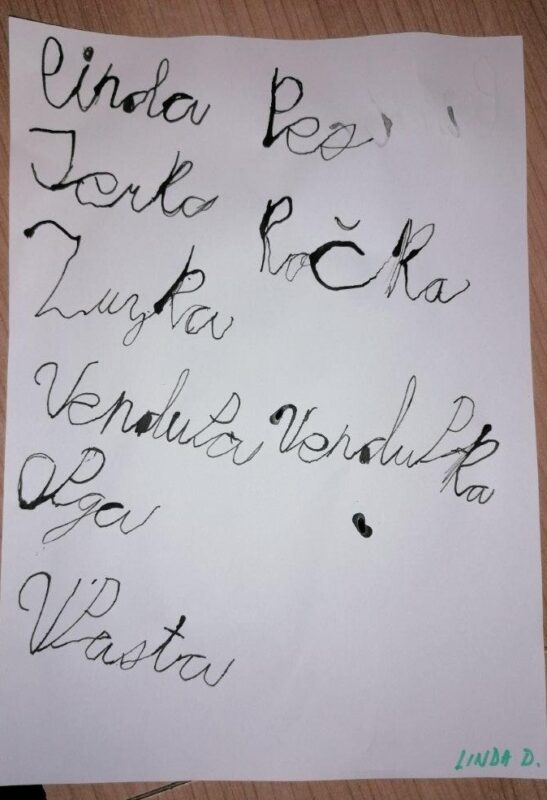 Linda Pes
Terka
Kočka
Zuzka
Vendula Vendulka
Olga
Vlasta
LINDA D.